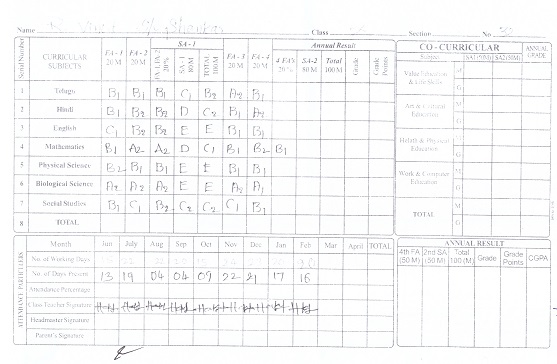 Name Class Section No. 30
Serial Number CURRICULAR SUBJECTS FA - 1 20 M FA - 2 20 M SA - 1 FA-1, FA-2 20% SA - 1 80M TOTAL 100M FA - 3 20 M FA - 4 20 M Annual Result 4 FA's 20% SA-2 80M Total 100M Grade Grade Points
1 Telugu B1 B1 B1 C1 B2 A2 B1
2 Hindi B1 B2 B2 D C2 A2
3 English C1 B2 B2 E E B1 B1
4 Mathematics B1 A2 A2 D C1 B1 B2 B1
5 Physical Science B2 B1 B1 E E B1 B1
6 Biological Science A2 A2 A2 E E A2 A1
7 Social Studies B1 C1 B2 C2 C2 C1 B1
8 TOTAL
CO - CURRICULAR ANNUAL GRADE
SA1(50M) SA2(50M)
Value Education & Life Skills M G
Art & Cultural Education M G
Health & Physical Education M G
Work & Computer Education M G
TOTAL M G
ATTENDANCE PARTICULERS
Month Jun July Aug Sep Oct Nov Dec Jan Feb Mar April TOTAL
No. of Working Days
No. of Days Present 13 19 04 04 09 22 21 17 16
Attendance Percentage
Class Teacher Signature
Headmaster Signature
Parent's Signature
ANNUAL RESULT
4th FA (50 M) 2nd SA (50 M) Total 100(M) Grade Grade Points CGPA